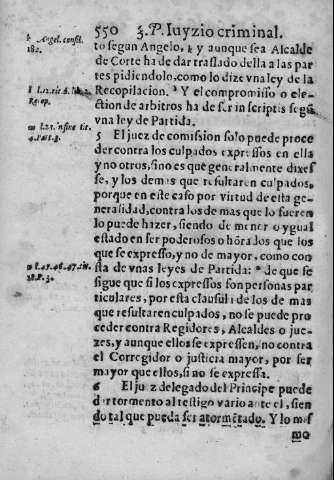 550 3. P. Iuyzio criminal.
k Angel. consil.
182.
to segun Angelo, k y aunque sea Alcalde
de Corte ha de dar traslado della a las par
tes pidiendolo, como lo dize vna ley de la
l l.12. tit. 6. lib. 2.
Recop.
Recopilacion. Y el compromisso o ele-
ction de arbitros ha de ser in scriptis segũ
vna ley de Partida.
m l.23. in fine tit.
4. Part. 3.
5 El juez de comision solo puede proce
der contra los culpados expressos en ella
y no otros, sino es que generalmente dixes-
se, y los demas que resultaren culpados,
porque en este caso por virtud de esta ge-
neralidad, contra los demas que lo fueren
lo puede hazer, siendo de menor o ygual
estado en ser poderosos o hõrados que los
que se expresso, y no de mayor, como con
n l.45.46.47. tit.
18. P. 3.
sta de vnas leyes de Partida: n de que se
sigue que si los expressos son personas par
ticulares, por esta clausula de los de mas
que resultaren culpados, no se puede pro
ceder contra Regidores, Alcaldes o jue-
zes, y aunque ellos se expressen, no contra
el Corregidor o justicia mayor, por ser
mayor que ellos, si no se expressa.
6 El juez delegado del Principe puede
dar tormento al testigo vario ante el, sien
do tal que pueda ser atormẽtado. Y lo mes
mo